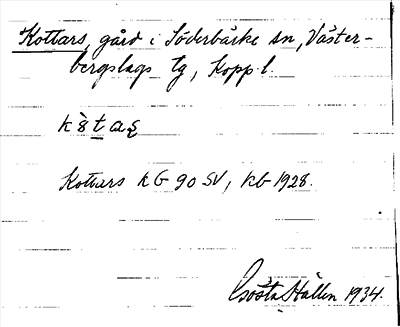 Kottars, gård i Söderbärke sn, Väster-
bergslags tg, Kopp. l.
Kottars KG 90 SV, kb 1928.
Gösta Hallén 1934.